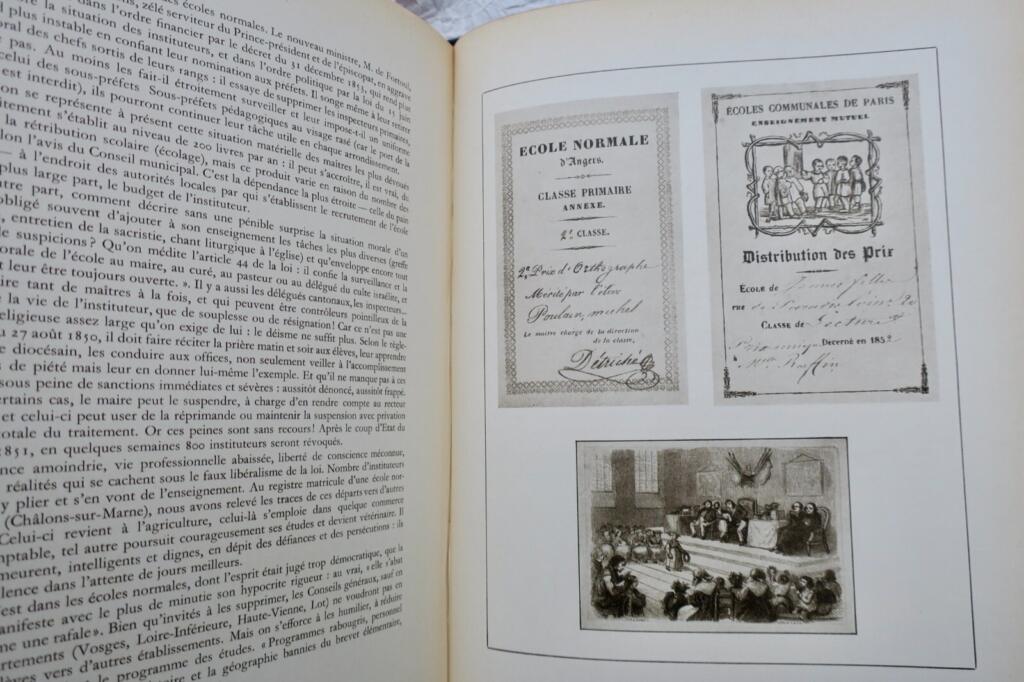 des écoles normales. Le nouveau ministre, M. de Fortoul,
ons, zélé serviteur du Prince-président et de l'épiscopat, en aggrave
dans l'ordre financier par le décret du 31 décembre 1853, qui rend plus
la situation des instituteurs, et dans l'ordre politique par la loi du 15 juin
plus instable en confiant leur nomination aux préfets. Il songe même à leur retirer
oral des chefs sortis de leurs rangs : il essaye de supprimer les inspecteurs primaires,
pas. Au moins les fait-il étroitement surveiller et leur impose-t-il un uniforme
celui des sous-préfets. Sous-préfets pédagogiques au visage rasé (car le port de la
est interdit), ils pourront continuer leur tâche utile en chaque arrondissement.
on se représente à présent cette situation matérielle des maîtres les plus dévoués
itement s'établit au niveau de 200 livres par an : il peut s'accroître, il est vrai, du
la rétribution scolaire (écolage), mais ce produit varie en raison du nombre des
lon l'avis du Conseil municipal. C'est la dépendance la plus étroite — celle du pain
— à l'endroit des autorités locales par qui s'établissent le recrutement de l'école
plus large part, le budget de l'instituteur.
utre part, comment décrire sans une pénible surprise la situation morale d'un
obligé souvent d'ajouter à son enseignement les tâches les plus diverses (greffe
, entretien de la sacristie, chant liturgique à l'église) et qu'enveloppe encore tout
de suspicions? Qu'on médite l'article 44 de la loi : il confie la surveillance et la
orale de l'école au maire, au curé, au pasteur ou au délégué du culte israélite, et
t leur être toujours ouverte. ». Il y a aussi les délégués cantonaux, les inspecteurs...
ire tant de maîtres à la fois, et qui peuvent être contrôleurs pointilleux de la
la vie de l'instituteur, que de souplesse ou de résignation! Car ce n'est pas une
religieuse assez large qu'on exige de lui : le déisme ne suffit plus. Selon le règle-
u 27 août 1850, il doit faire réciter la prière matin et soir aux élèves, leur apprendre
e diocésain, les conduire aux offices, non seulement veiller à l'accomplissement
s de piété mais leur en donner lui-même l'exemple. Et qu'il ne manque pas à ces
sous peine de sanctions immédiates et sévères : aussitôt dénoncé, aussitôt frappé.
ertains cas, le maire peut le suspendre, à charge d'en rendre compte au recteur
et celui-ci peut user de la réprimande ou maintenir la suspension avec privation
totale du traitement. Or ces peines sont sans recours! Après le coup d'Etat du
1851, en quelques semaines 800 instituteurs seront révoqués.
nce amoindrie, vie professionnelle abaissée, liberté de conscience méconnue,
réalités qui se cachent sous le faux libéralisme de la loi. Nombre d'instituteurs
y plier et s'en vont de l'enseignement. Au registre matricule d'une école nor-
(Châlons-sur-Marne), nous avons relevé les traces de ces départs vers d'autres
Celui-ci revient à l'agriculture, celui-là s'emploie dans quelque commerce
mptable, tel autre poursuit courageusement ses études et devient vétérinaire. Il
meurent, intelligents et dignes, en dépit des défiances et des persécutions : ils
lence dans l'attente de jours meilleurs.
est dans les écoles normales, dont l'esprit était jugé trop démocratique, que la
anifeste avec le plus de minutie son hypocrite rigueur : au vrai, « elle s'abat
me une rafale ». Bien qu'invités à les supprimer, les Conseils généraux, sauf en
rtements (Vosges, Loire-Inférieure, Haute-Vienne, Lot) ne voudront pas en
lèves vers d'autres établissements. Mais on s'efforce à les humilier, à réduire
le programme des études. « Programmes rabougris, personnel
et la géographie bannies du brevet élémentaire,
ECOLE NORMALE
d'Angers.
CLASSE PRIMAIRE
ANNEXE.
2e. CLASSE.
2e Prix d'Orthographe
Mérité par l'élève
Poulain, michel
Le maître chargé de la direction
de la classe,
Détriché
ÉCOLES COMMUNALES DE PARIS
ENSEIGNEMENT MUTUEL
Distribution des Prix
ÉCOLE de Jeunes filles
rue de
CLASSE de Lecture
Décerné en 185
à Melle Raffin